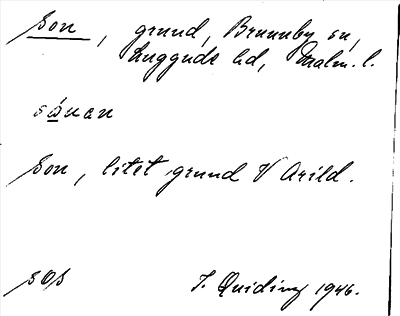 Son, grund, Brunnby sn,
Luggude hd, Malm. l.
sånan
Son, litet grund V Arild.
SOS
J. Quiding 1946.